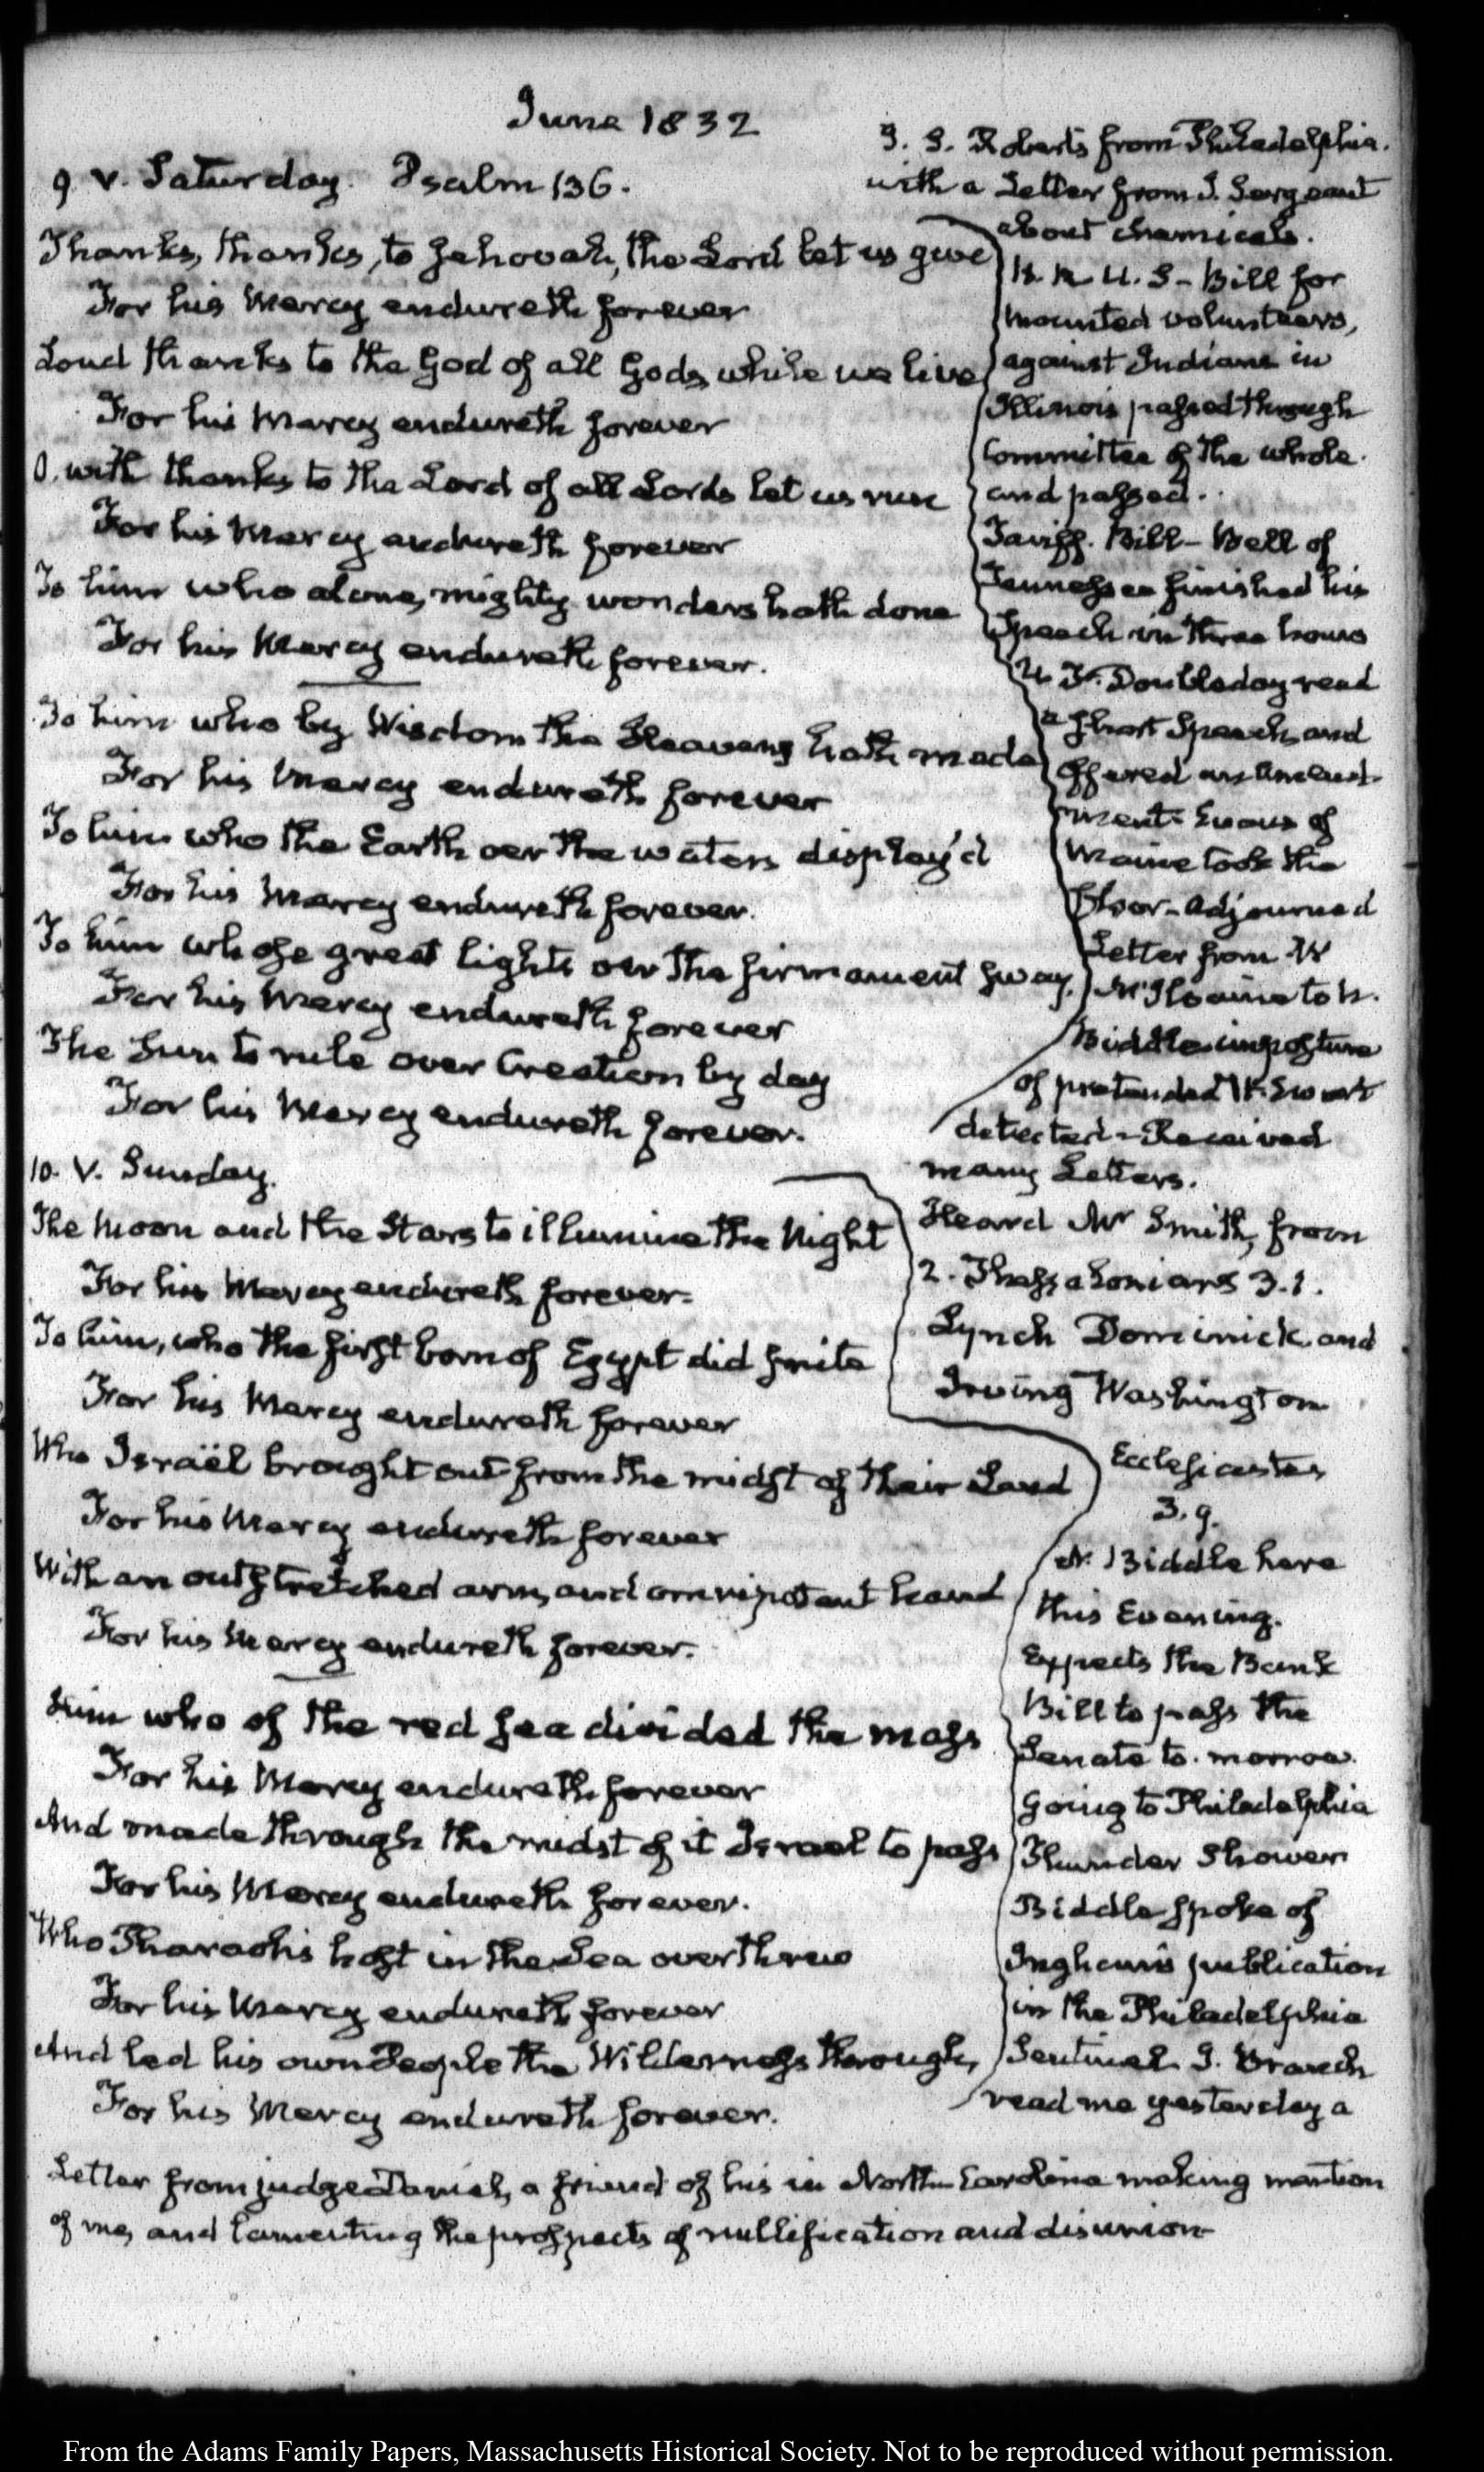 June 1832
9. V. Saturday. Psalm 136.
Thanks, thanks, to Jehovah, the Lord let us give
For his Mercy endureth forever
Loud thanks to the God of all Gods, while we live
For his Mercy endureth forever
O, with thanks to the Lord of all Lords let us run
For his Mercy endureth forever
To him who alone, mighty wonders hath done
For his Mercy endureth forever.
To him who by Wisdom the Heavens hath made
For his Mercy endureth forever
To him who the Earth oer the waters display'd
For his Mercy endureth forever.
To him whose great lights oer the firmament sway,
For his Mercy endureth forever
The Sun to rule over Creation by day
For his Mercy endureth forever.
I. S. Roberts from Philadelphia.
with a Letter from J. Sergeant
about chemicals.
H. R. U. S - Bill for
mounted volunteers,
against Indians in
Illinois passed through
Committee of the whole.
and passed.
Tariff. Bill - Bell of
Tennessee finished his
Speech in three hours
U. F. Doubleday read
a short Speech, and
offered an Amend-
ment Evans of
Maine took the
Floor - Adjourned
Letter from W
McIlvaine to N.
Biddle imposture
of pretended W. Ewart
detected - Received
many Letters.
10. V. Sunday.
The Moon and the Stars to illumine the Night
For his Mercy endureth forever.
To him, who the first born of Egypt did smite
For his Mercy endureth forever
Who Israël brought out from the midst of their Land
For his Mercy endureth forever
With an outstretched arm, and omnipotent hand
For his Mercy endureth forever.
Him who of the red sea divided the mass
For his Mercy endureth forever
And made through the midst of it Israel to pass
For his Mercy endureth forever.
Who Pharaoh's host in the Sea overthrew
For his Mercy endureth forever
And led his own People the Wilderness through,
For his Mercy endureth forever.
Heard Mr Smith, from
2. Thessalonians 3.1.
Lynch Dominick and
Irving Washington
Ecclesiastes
3.9.
N. Biddle here
this Evening.
Expects the Bank
Bill to pass the
Senate to-morrow.
Going to Philadelphia
Thunder Shower
Biddle spoke of
Ingham's publication
in the Philadelphia
Sentinel. J. Branch
read me yesterday a
Letter from judge Daniel, a friend of his in North-Carolina making mention
of me, and lamenting the prospects of nullification and disunion
From the Adams Family Papers, Massachusetts Historical Society. Not to be reproduced without permission.